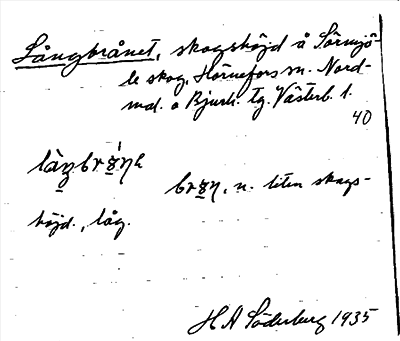 Långbrånet, skogshöjd å Sörmjö-
le skog, Hörnefors sn. Nord-
mal. o Bjurh. tg. Västerb. l.
40
bron, n. liten skogs-
höjd, låg.
H A Söderberg 1935